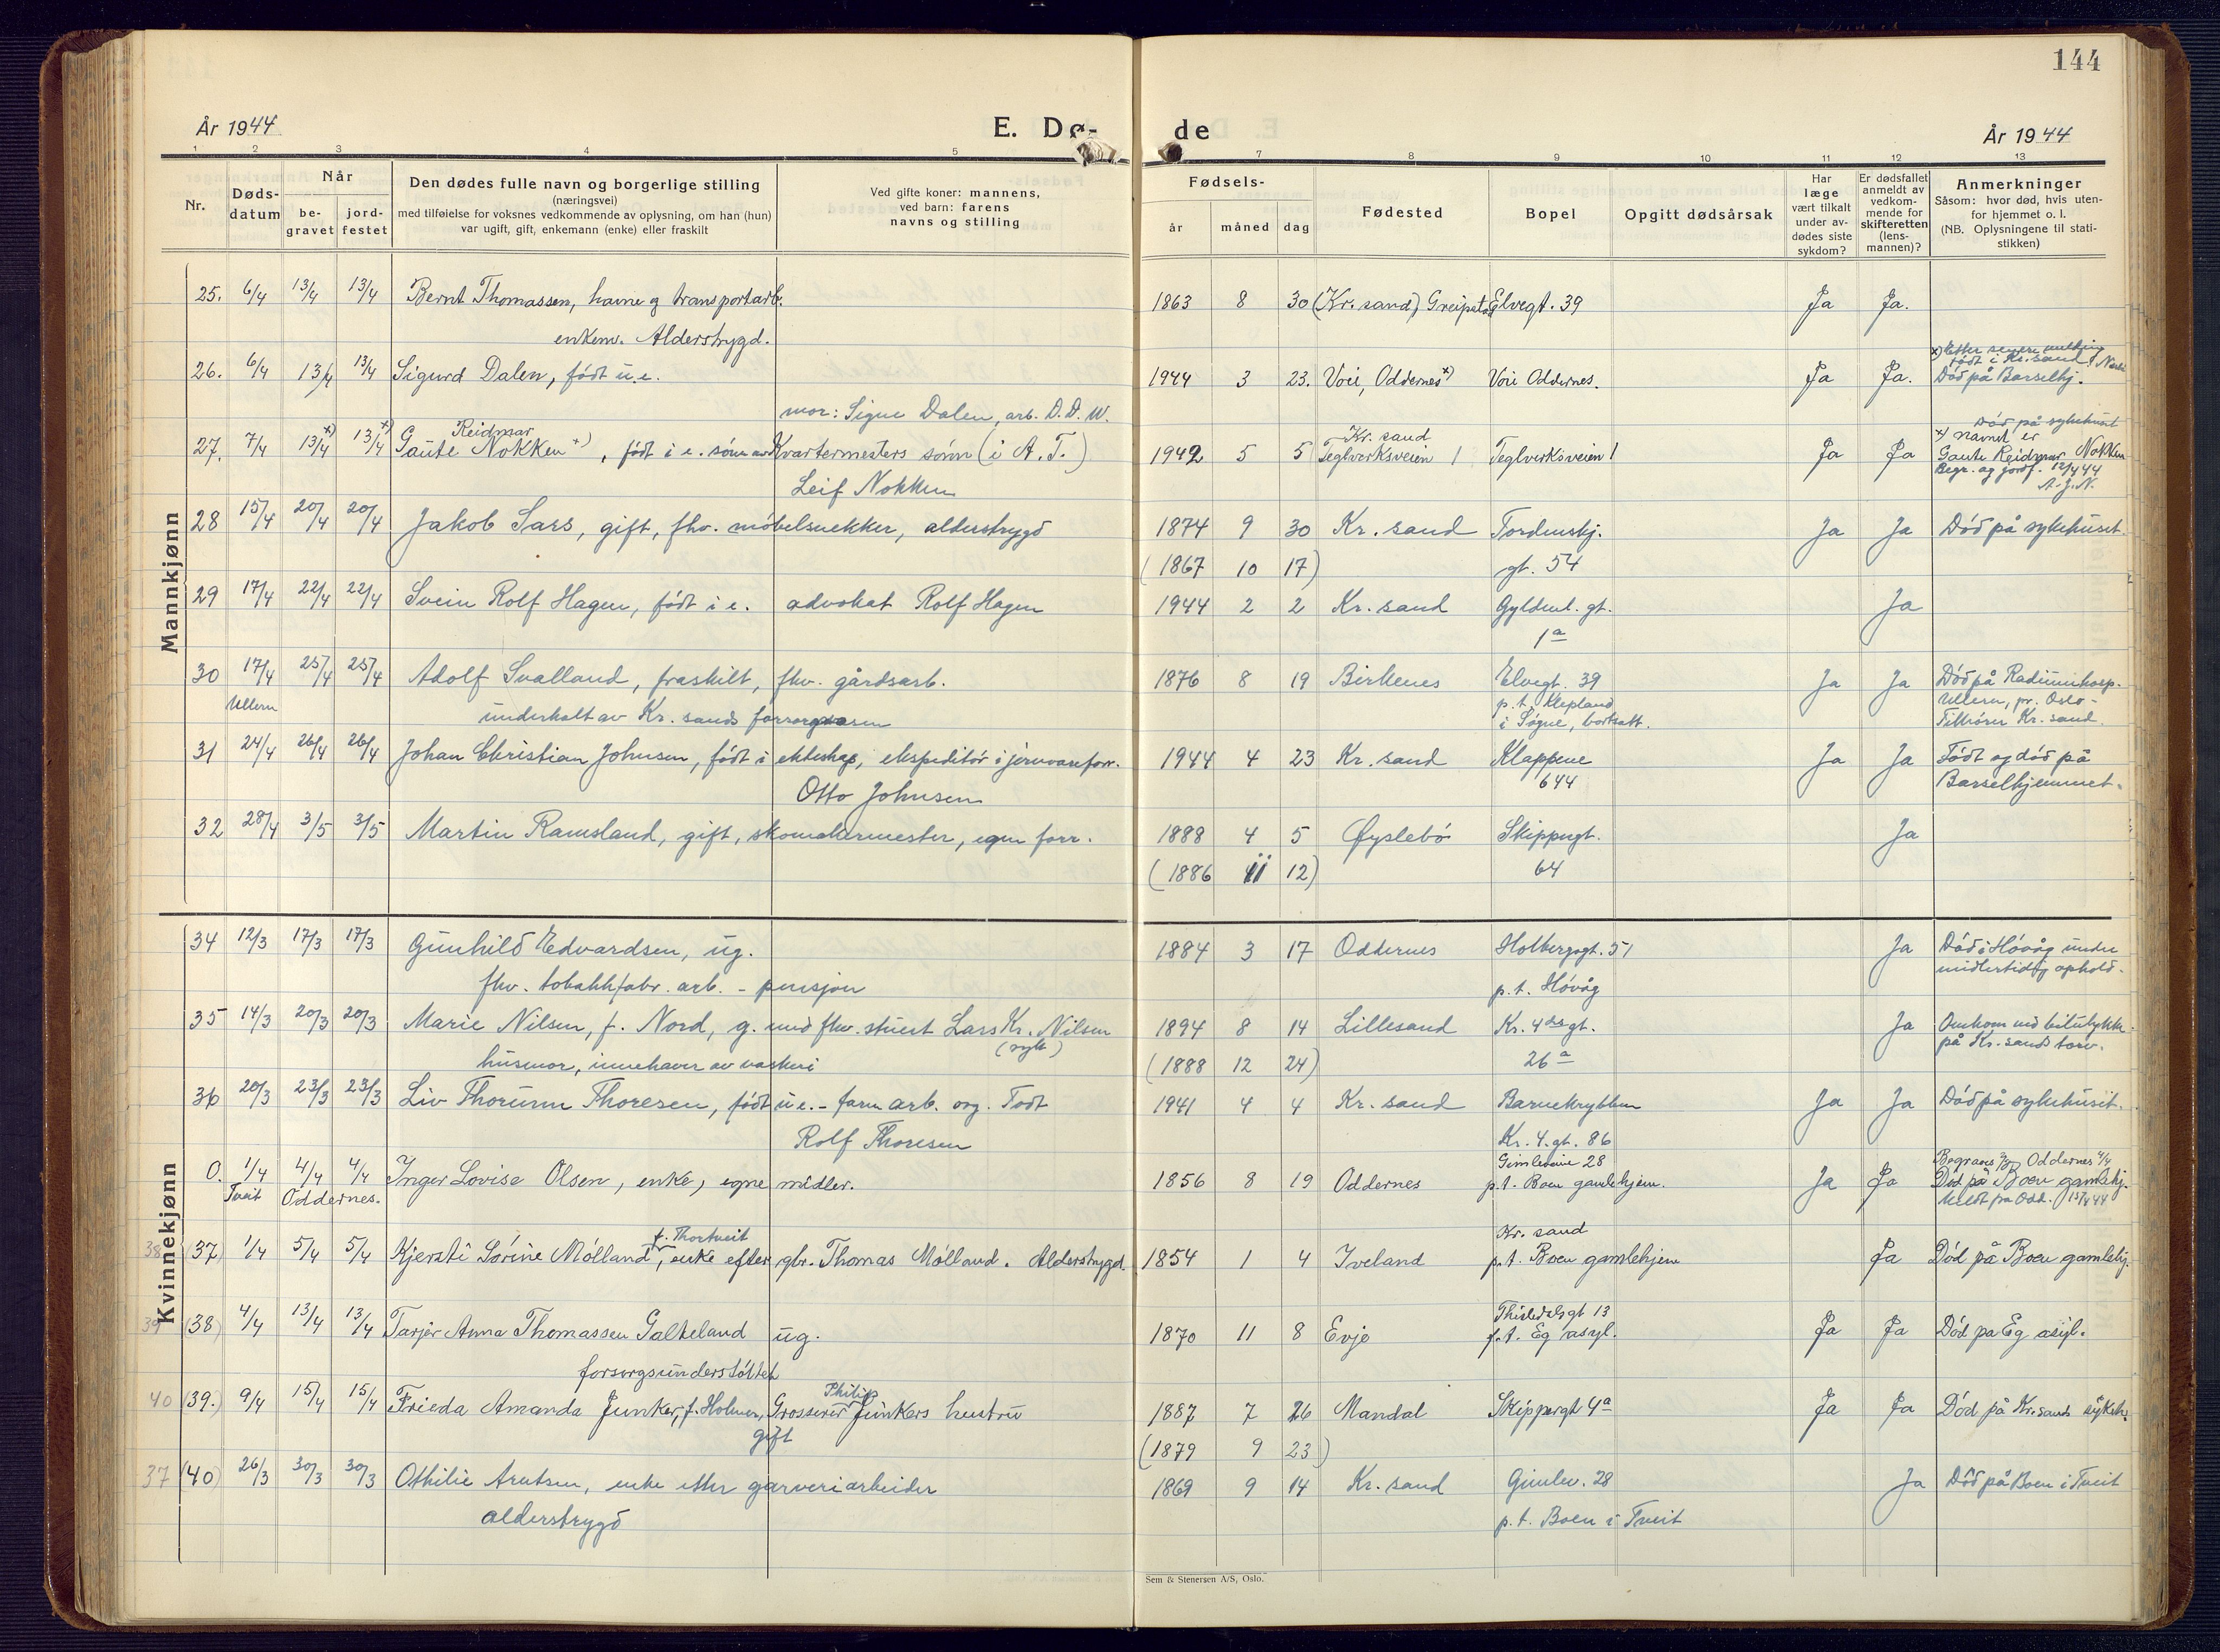 144
År 1944
E. Dø-
de
År 1944
1 2 3 4 5 7 8 9 10 11 12 13
Nr.
Døds-
datum
Når
be-
gravet
jord-
festet
Den dødes fulle navn og borgerlige stilling
(næringsvei)
med tilføielse for voksnes vedkommende av oplysning, om han (hun)
var ugift, gift, enkemann (enke) eller fraskilt
Ved gifte koner: mannens,
ved barn: farens
navns og stilling
Fødsels-
år måned dag
Fødested
Bopel
Opgitt dødsårsak
Har
læge
vært tilkalt
under av-
dødes siste
sykdom?
Er dødsfallet
anmeldt av
vedkom-
mende for
skifteretten
(lens-
mannen)?
Anmerkninger
Såsom: hvor død, hvis uten-
for hjemmet o. l.
(NB. Oplysningene til stati-
stikken)
Mannkjønn
25. 6/4 13/4 13/4 Bernt Thomassen, havne og transportarb. 1863 8 30 (Kr. sand) Elvegt. 39 Ja Ja.
enkem. Alderstrygd.
26. 6/4 13/4 13/4 Sigurd Dalen, født u.e. 1944 3 23. Voie, Oddernes x) Voie Oddernes. Ja Ja. x) Efter senere melding
født i Kr. sand
Død på Barselhj.
mor: Signe Dalen, arb. D.D.W.
Reidmar
27. 7/4 13/4 x) 13/4 x) Gaute Nokken x), født i e. sønn av Kvartermesters sønn (i A.T.)
Leif Nokken
Kr. sand
1942 5 5 Teglverksveien 1 Teglverksveien 1 Ja Ja
Død på sykehuset
x) navnet er
Gaute Reidmar Nokken
Begr. og jordf. 12/4 44
A.J.N.
28 15/4 20/4 20/4 Jakob Sars, gift, fhv. møbelsnekker, alderstrygd 1874 9 30 Kr. sand Tordenskj. Ja Ja Død på sykehuset
(1867 10 17) gt. 54
29 17/4 22/4 22/4 Svein Rolf Hagen, født i e. advokat Rolf Hagen 1944 2 2 Kr. sand Gyldenl. gt. Ja
1a
30 17/4 25/4 25/4 Adolf Svalland, fraskilt, fhv. gårdsarb. 1876 8 19 Birkenes Elvegt. 39 Ja Ja Død på Radiumhosp.
Ullern underholt av Kr. sands forsorgsvesen p.t. Klepland Ullern, pr. Oslo-
i Søgne, bortsatt. Tilhører Kr. sand.
31 24/4 26/4 26/4 Johan Christian Johnsen, født i ekteskap, ekspeditør i jernvareforr. 1944 4 23 Kr. sand Klappene Ja Ja Født og død på
Otto Johnsen 644 Barselhjemmet.
32 28/4 3/5 3/5 Martin Ramsland, gift, skomakermester, egen forr. 1888 4 5 Øyslebø Skippergt. Ja
(1886 11 12) 64
Kvinnekjønn
34 12/3 17/3 17/3 Gunhild Edvardsen, ug. 1884 3 17 Oddernes Holbergsgt. 51 Ja Død i Høvåg under
fhv. tobakkfabr. arb. - pensjon p.t. Høvåg midlertidig ophold.
35 14/3 20/3 20/3 Marie Nilsen, f. Nord, g. med fhv. stuert Lars Kr. Nilsen 1894 8 14 Lillesand Kr. 4des gt. Ja Omkom ved bilulykke
husmor, innehaver av vaskeri (1888 12 24) 26a på Kr. sands torv.
36 20/3 23/3 23/3 Liv Thorunn Thoresen, født u.e. - farm arb. org. Todt 1941 4 4 Kr. sand Barnekrybben Ja Ja Død på sykehuset.
Rolf Thoresen Kr. 4. gt. 86
Gimleveien 28
O. 1/4 4/4 4/4 Inger Lovise Olsen, enke, egne midler. 1856 8 19 Oddernes p.t. Boen gamlehjem. Ja Ja Begraves på Oddernes 4/4
Tveit Oddernes. Død på Boen gamlehj.
Meldt fra Odd. 15/4 44
f. Thortveit Kr. sand
38 (37) 1/4 5/4 5/4 Kjersti Sørine Mølland, enke efter gbr. Thomas Mølland. Alderstrygd. 1854 1 4 Iveland p.t. Boen gamlehjem Ja Død på Boen gamlehj.
Thisledalsgt 13
39 (38) 4/4 13/4 13/4 Tarjer Anna Thomassen Galteland ug. 1870 11 8 Evje p.t. Eg asyl. Ja Ja Død på Eg asyl.
forsorgsunderstøttet
Philip
40 (39.) 9/4 15/4 15/4 Frieda Amanda Junker, f. Holmen, Grosserer Junkers hustru 1887 7 26 Mandal Skippergt 4a Ja Ja Død på Kr.sands sykeh.
gift (1879 9 23)
37 (40) 26/3 30/3 30/3 Othilie Arntsen, enke etter garveriarbeider 1869 9 14 Kr. sand Gimlev. 28 Ja Død på Boen i Tveit
alderstrygd p.t. Boen i Tveit
Sem & Stenersen A/S, Oslo.